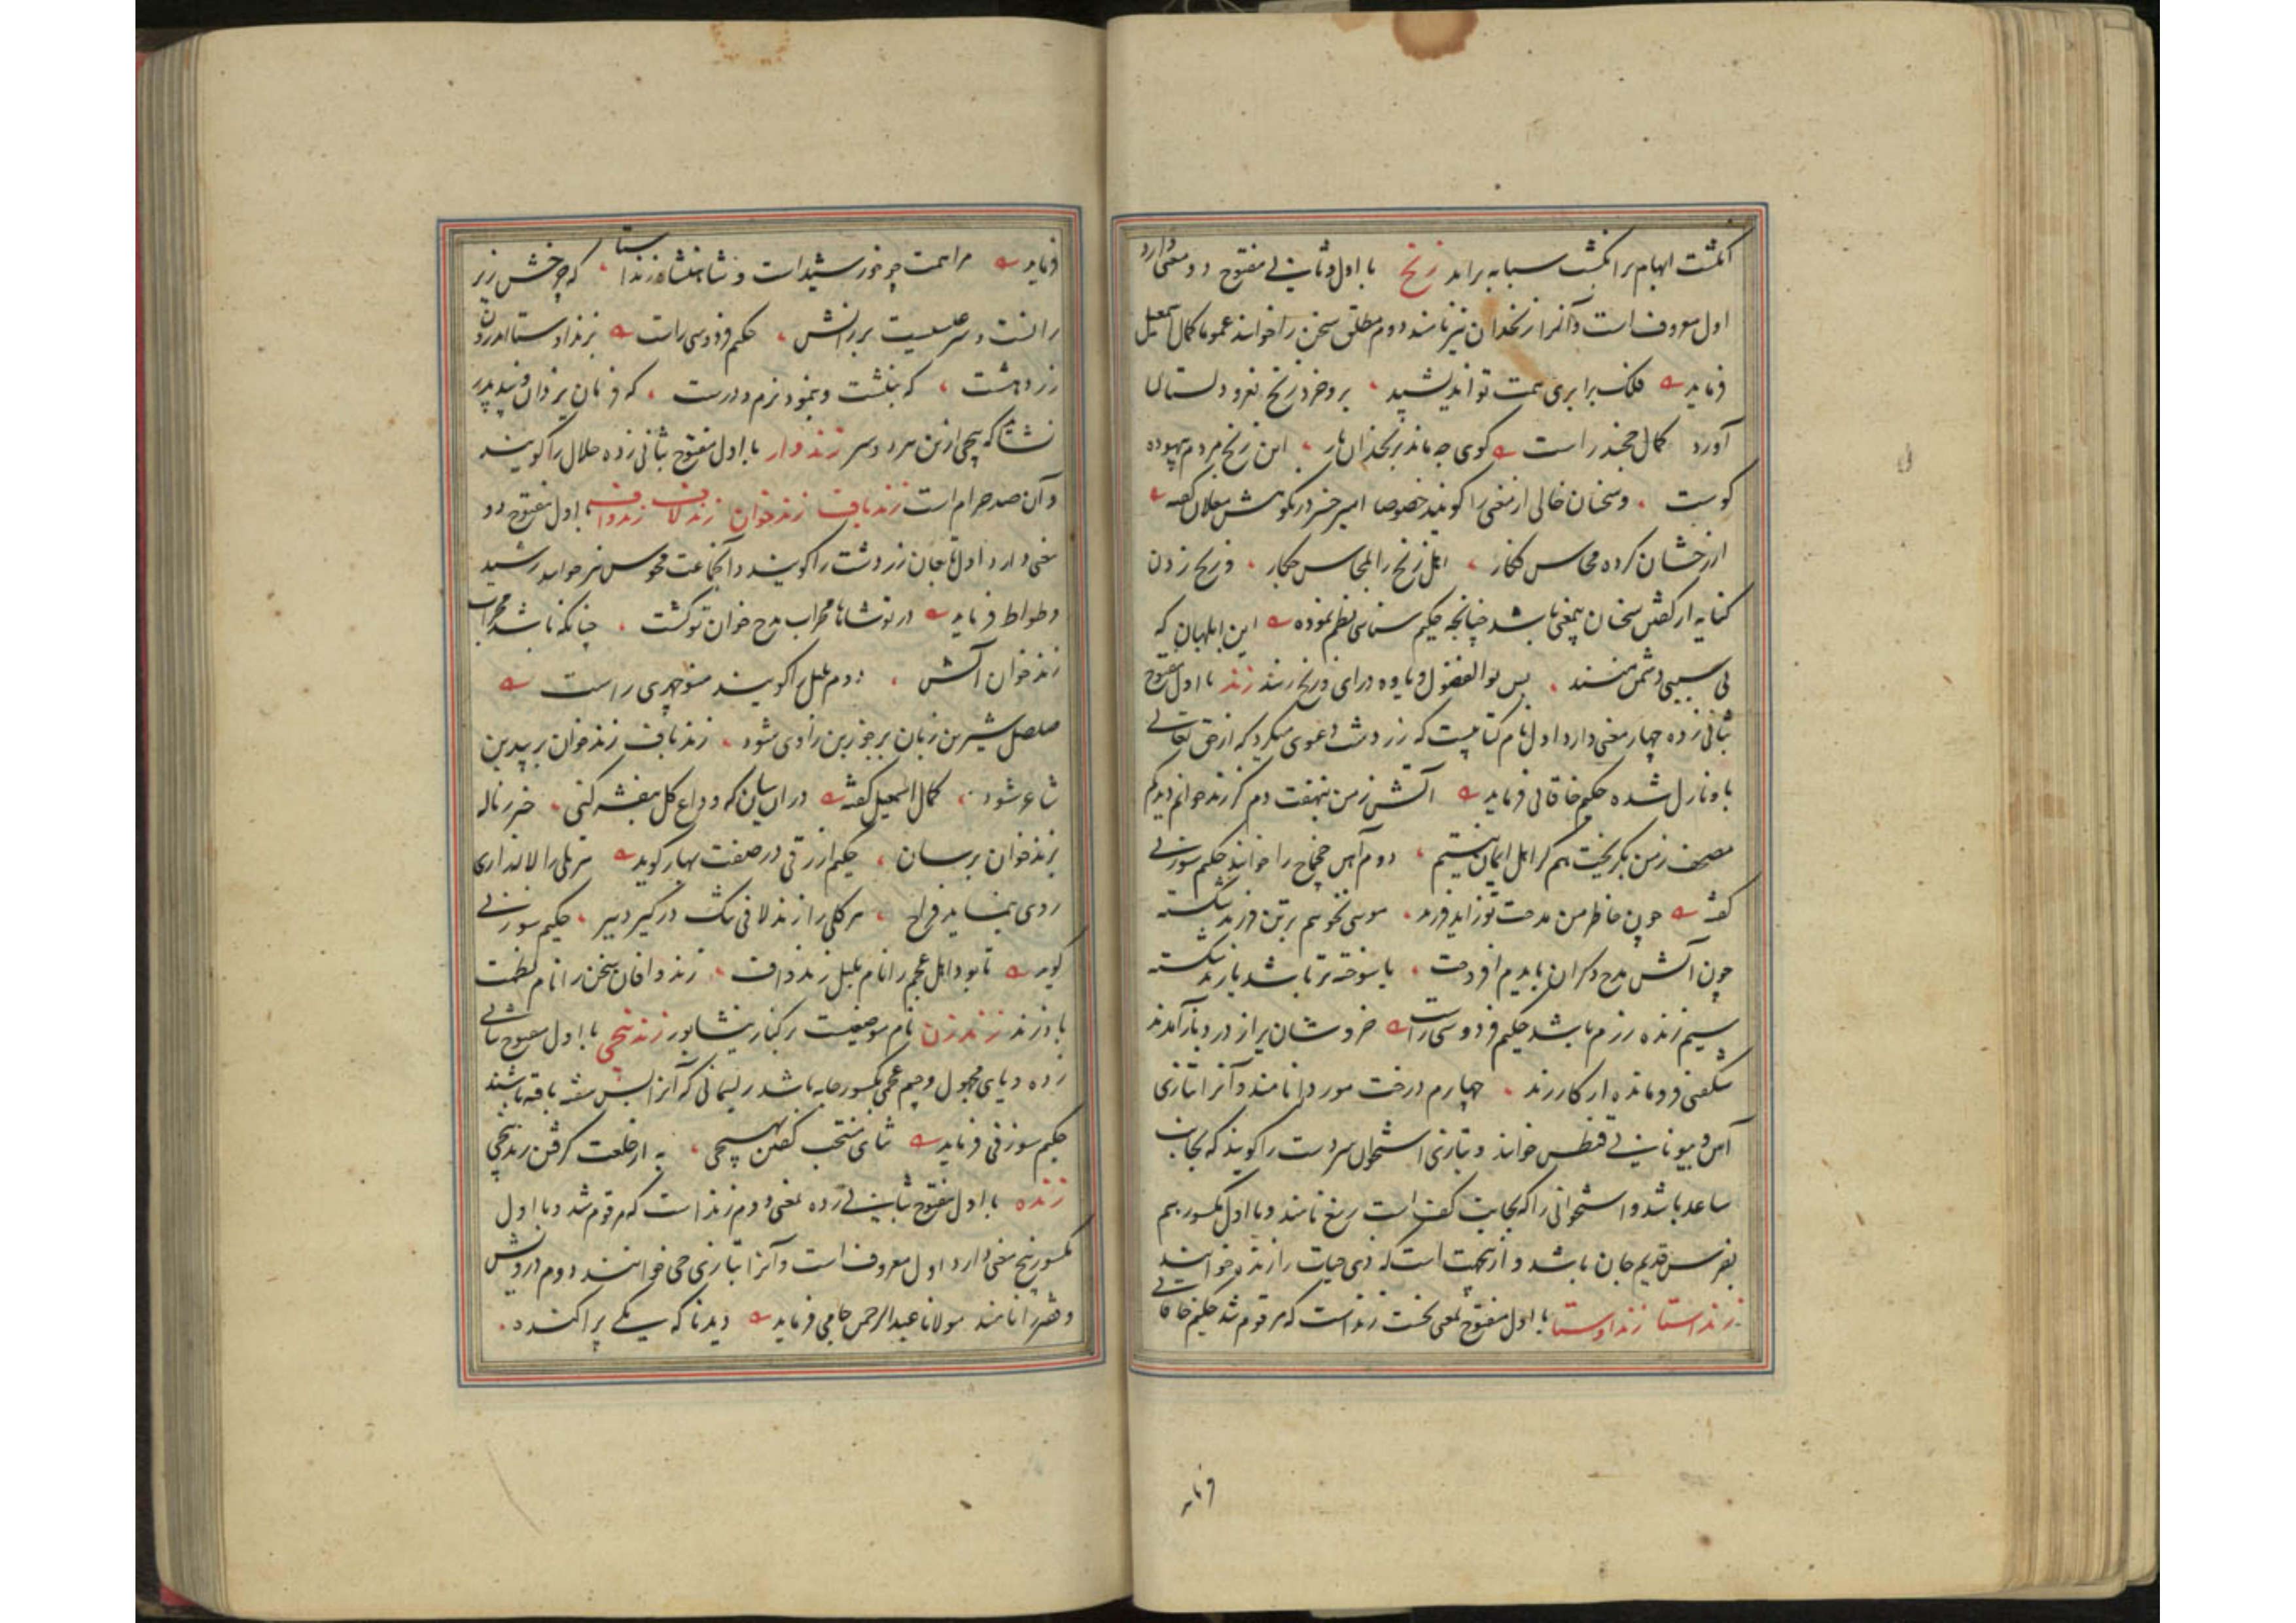 انگشت ابهام بر انگشت سبابه براند زنخ با اول و ثانی مفتوح دو معنی دارد
اول معروف است و آنرا زنخدان نیز نامند دوم مطلق سخن را خوانند عموما کمال اسمعیل
فرماید فلک برابری همت تو اندیشید بروخرد زنخ نغز و دلستان
آورد کمال خجند راست کوی چه ماند بزنخدان یار این زنخ مردم بیهوده
کوست و سخنان خالی از معنی را کویند خصوصا امیر خسرو در نکوهش مغلان گفته
از زخشان کرده محاسن کنار اهل زنخ را بمحاسن چکار و زنخ زدن
کنایه از گفتن سخنان بیمعنی باشد چنانچه حکیم سنائی نظم نموده این ابلهان که
بی سببی دشمن منند بس بوالفضول و یاوه درای و زنخ زنند زند با اول مفتوح
بثانی زده چهار معنی دارد اول نام کتابیست که زردشت دعوی میکرد که از حق تعالی
باو نازل شده حکیم خاقانی فرماید آتش ز من نهفت دم کز زند خوانم دید کم
مصحف ز من بگریخت هم کز اهل ایمان نیستم دوم آهن چخماخ را خوانند حکیم سوزنی
گفته چون خاطر من مدحت تو زاید فرزند موسی نخوهم برتن فرزند شکسته
چون آتش مدح دکران بایدم افروخت یا سوخته تر باشد یا زند شکسته
سیم زنده رزم باشد حکیم فردوسی راست خروشان براز درد باز آمدند
شکفتی فرومانده از کار زند چهارم درخت مورد را نامند و آنرا بتازی
آس و بیونانی قنطس خوانند و بتازی استخوان سردست را کویند که بجانب
ساعد باشد و استخوانی را که بجانب کف است رسغ نامند و با اول مکسور هم
بفرس قدیم جان باشد و ازینجهت است که ذی حیات را زنده خوانند
زنداستا زنداوستا با اول مفتوح بمعنی نخست زند است که مرقوم شد حکیم خاقانی
فرماید
فرماید مراهمت چو خورشید است و شاهنشاه زنداستا که چرخش زیر
رانست و سر عیسیست بر رانش حکیم فردوسی راست بزنداوستا اندرون
زردهشت که بنگشت و بنمود نرم و درست که فرمان یزدان و پند پدر
نشاید که پیچی ازین مرد و سر زندوار با اول مفتوح بثانی زده حلال را کویند
و آن ضد حرام است زندباف زندخوان زندلاف زندواف با اول مفتوح دو
معنی دارد اول تابعان زردشت را کویند و آنجماعت مجوس نیز خوانند رشید
وطواط فرماید در تو شاها محراب مدح خوان تو کشت چنانکه باشد محراب
زندخوان آتش دوم بلبل را کویند منوچهری راست
صلصل شیرین زبان بر جوزبن راوی شود زندباف زندخوان بر بیدبن
شاعر شود کمال اسمعیل گفته در ان بیان که وداع کل بنفشه کنی خبر ز ناله
بزندخوان برسان حکیم ازرقی در صفت بهار کوید هر تلی را لاله داری
روی بنماید فراخ هر کلی را زندلافی تنگ در کیرد ببر حکیم سوزنی
کوید تا بود اهل عجم را نام بلبل زندواف زندوافان سخن را نام نطقت
باد زند زندرزن نام موضعیست بکنار نیشابور زندنیچی با اول مفتوح بثانی
زده و یای مجهول و جیم عجمی مکسور جامه باشد ریسمانی که آنرا بس سفید بافته باشند
حکیم سوزنی فرماید ثنای منتخب گفتن بهیچی به از خلعت کرفتن زندنیچی
زنده با اول مفتوح بثانی زده بمعنی دوم زند است که مرقوم شد و با اول
مکسور پنج معنی دارد اول معروف است و آنرا بتازی حی خوانند دوم درویش
و فقیر را نامند مولانا عبدالرحمن جامی فرماید دید ناکه یکی پراکنده